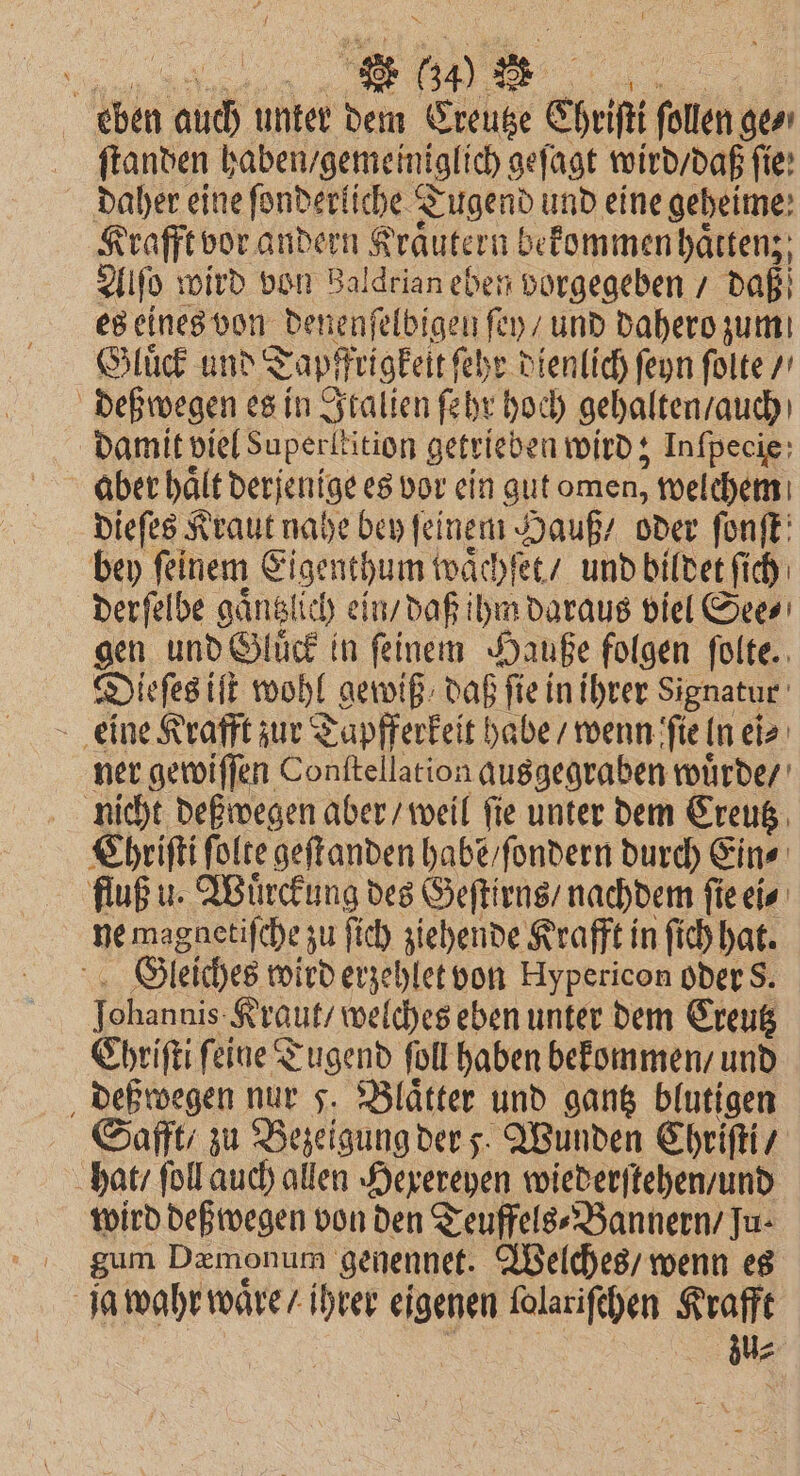 (34)
eben auch unter dem Creutze Chriſti ſollen ge⸗
ſtanden haben/gemeiniglich geſagt wird/daß ſie
daher eine ſonderliche Tugend und eine geheime
Krafft vor andern Kraͤutern bekommen haͤtten;
Alſo wird von Baldrian eben vorgegeben / daß
es eines von denenſelbigen ſey / und dahero zum
Gluͤck und Tapffrigkeit ſehr dienlich ſeyn ſolte /
deßwegen es in Italien ſehr hoch gehalten/auch
damit viel Superſtition getrieben wird; Inſpecie
aber haͤlt derjenige es vor ein gut omen, welchem
dieſes Kraut nahe bey ſeinem Hauß/ oder ſonſt
bey ſeinem Eigenthum waͤchſet/ und bildet ſich
derſelbe gaͤntzlich ein/daß ihm daraus viel See⸗
gen und Gluͤck in ſeinem Hauße folgen ſolte.
Dieſes iſt wohl gewiß/ daß ſie in ihrer Signatur
eine Krafft zur Tapfferkeit habe / wenn ſie in ei⸗
ner gewiſſen Conſtellation ausgegraben wuͤrde/
nicht deßwegen aber / weil ſie unter dem Creutz
Chriſti ſolte geſtanden habẽ/ſondern durch Ein⸗
fluß u. Wuͤrckung des Geſtirns/ nachdem ſie ei⸗
ne magnetiſche zu ſich ziehende Krafft in ſich hat.
Gleiches wird erzehlet von Hypericon oder S.
Johannis-Kraut/ welches eben unter dem Creutz
Chriſti ſeine Tugend ſoll haben bekommen/ und
deßwegen nur 5. Blaͤtter und gantz blutigen
Safft/ zu Bezeigung der 5. Wunden Chriſti /
hat/ ſoll auch allen Hexereyen wiederſtehen/und
wird deßwegen von den Teuffels⸗Bannern/ Ju-
gum Dæmonum genennet. Welches/ wenn es
ja wahr waͤre / ihrer eigenen ſolariſchen Krafft
zu⸗